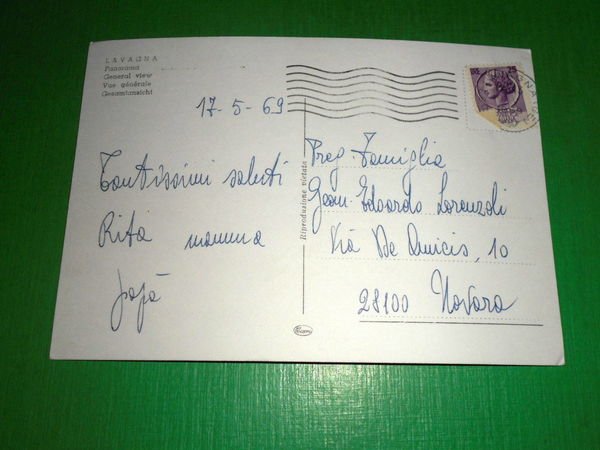 LAVAGNA
Panorama
General view
Vue générale
Gesamtansicht
17-5-69
Tantissimi saluti
Rita mamma
papà
Riproduzione vietata
Preg. Famiglia
Geom. Edoardo Lorenzoli
Via De Amicis, 10
28100 Novara
25